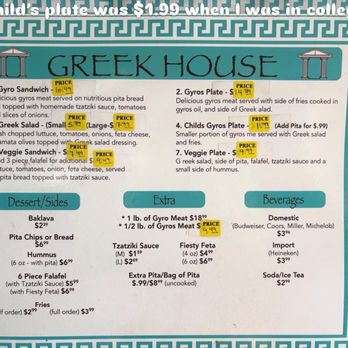 hild's plate was $1.99 when I was in colle
GREEK HOUSE
Gyro Sandwich - PRICE 10.49
icious gyros meat served on nutritious pita bread
topped with homemade tzatziki sauce, tomatoes
d slices of onions.
2. Gyros Plate - PRICE $14.99
Delicious gyros meat served with side of fries cooked in
gyros oil, and side of Greek alad.
Greek Salad - (Small PRICE 5.99 (Large-$ PRICE 7.99
sh chopped lettuce, tomatoes, onions, feta cheese,
amata olives topped with Greek salad dressing.
4. Childs Gyros Plate - PRICE 11.99 (Add Pita for $.99)
Smaller portion of gyros meat served with Greek salad
and fries.
Veggie Sandwich - PRICE $7.99 PRICE $9.49
d 3 piece falafel for additional $
tuce, tomatoes, onion, feta cheese, served
pita bread topped with tzatziki sauce
7. Veggie Plate - PRICE $9.99
G reek salad, side of pita, falafel, tzatziki sauce and a
small side of hummus.
Dessert/Sides
Baklava
$2²⁹
Pita Chips or Bread
$6⁹⁹
Hummus
(6 oz - with pita) $6⁹⁹
6 Piece Falafel
(with Tzatziki Sauce) $5⁹⁹
(with Fiesty Feta) $6⁹⁹
Fries
f order) $2⁹⁹ (full order) $3⁹⁹
Extra
* 1 lb. of Gyro Meat $18⁹⁹
* 1/2 lb. of Gyros Meat $ PRICE 9.49
Tzatziki Sauce
(M) $1⁵⁹
(L) $2⁶⁹
Fiesty Feta
(4 oz) $4⁹⁹
(6 oz) $6⁹⁹
Extra Pita/Bag of Pita
$.99/$8⁹⁹ (uncooked)
Beverages
Domestic
(Budweiser, Coors, Miller, Michelob)
$3⁷⁵
Import
(Heineken)
$3⁹⁹
Soda/Ice Tea
$2⁹⁹